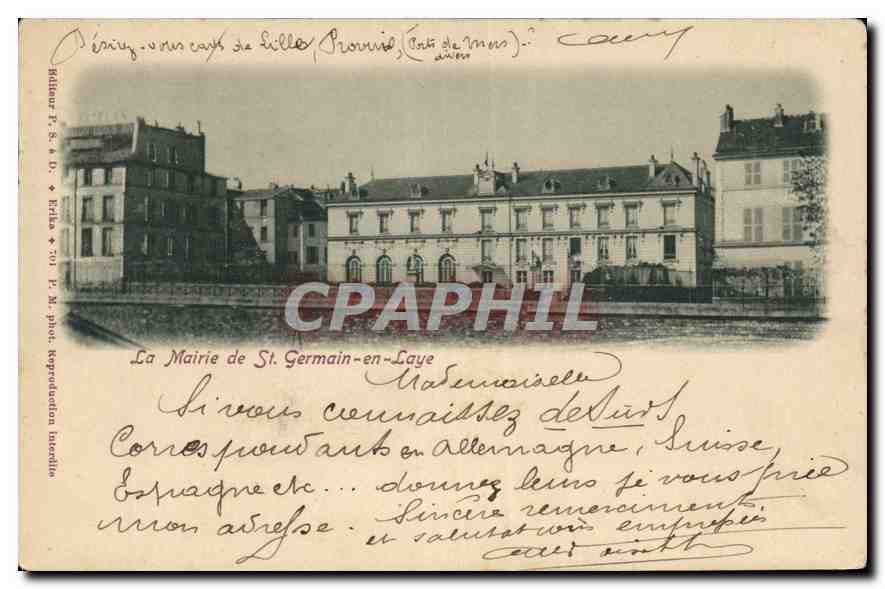 Désirez-vous cartes de Lille, Provins, (Ports de Mers) ?
divers
Editeur P. S. à D. ✦ Erika ✦ 701 P. M. phot. Reproduction interdite
CPAPHIL
La Mairie de St. Germain-en-Laye
Mademoiselle
Si vous connaissez de
Correspondants en Allemagne, Suisse,
Espagne etc... donnez leur je vous prie
mon adresse. Sincère remerciments
et salutations empressées